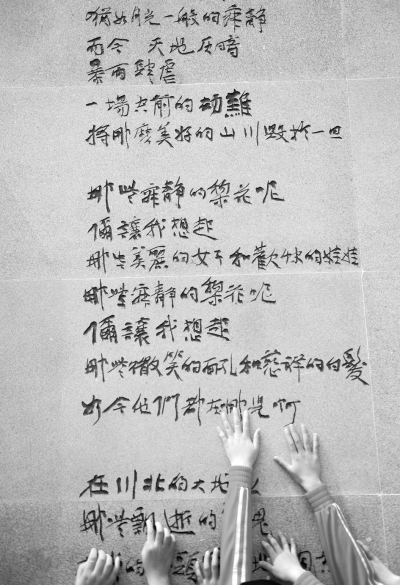 猶如月光一般的寂靜
而今 天地灰暗
暴雨肆虐
一場空前的劫難
將那麼美好的山川毀於一旦
那些寂靜的梨花呢
你讓我想起
那些美麗的女子和歡快的娃娃
那些寂靜的梨花呢
你讓我想起
那些微笑的面孔和慈祥的白髮
如今他們都在哪兒啊
在川北的大地上
那些飄逝的